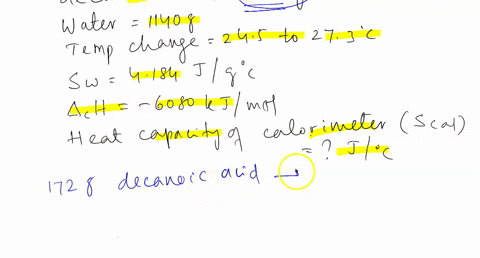 Water = 1140 g
Temp change = 24.5 to 27.3°C
Sw = 4.184 J/g°C
ΔcH = -6080 kJ/mol
Heat capacity of calorimeter (Scal)
= ? J/°C
172 g decanoic acid →